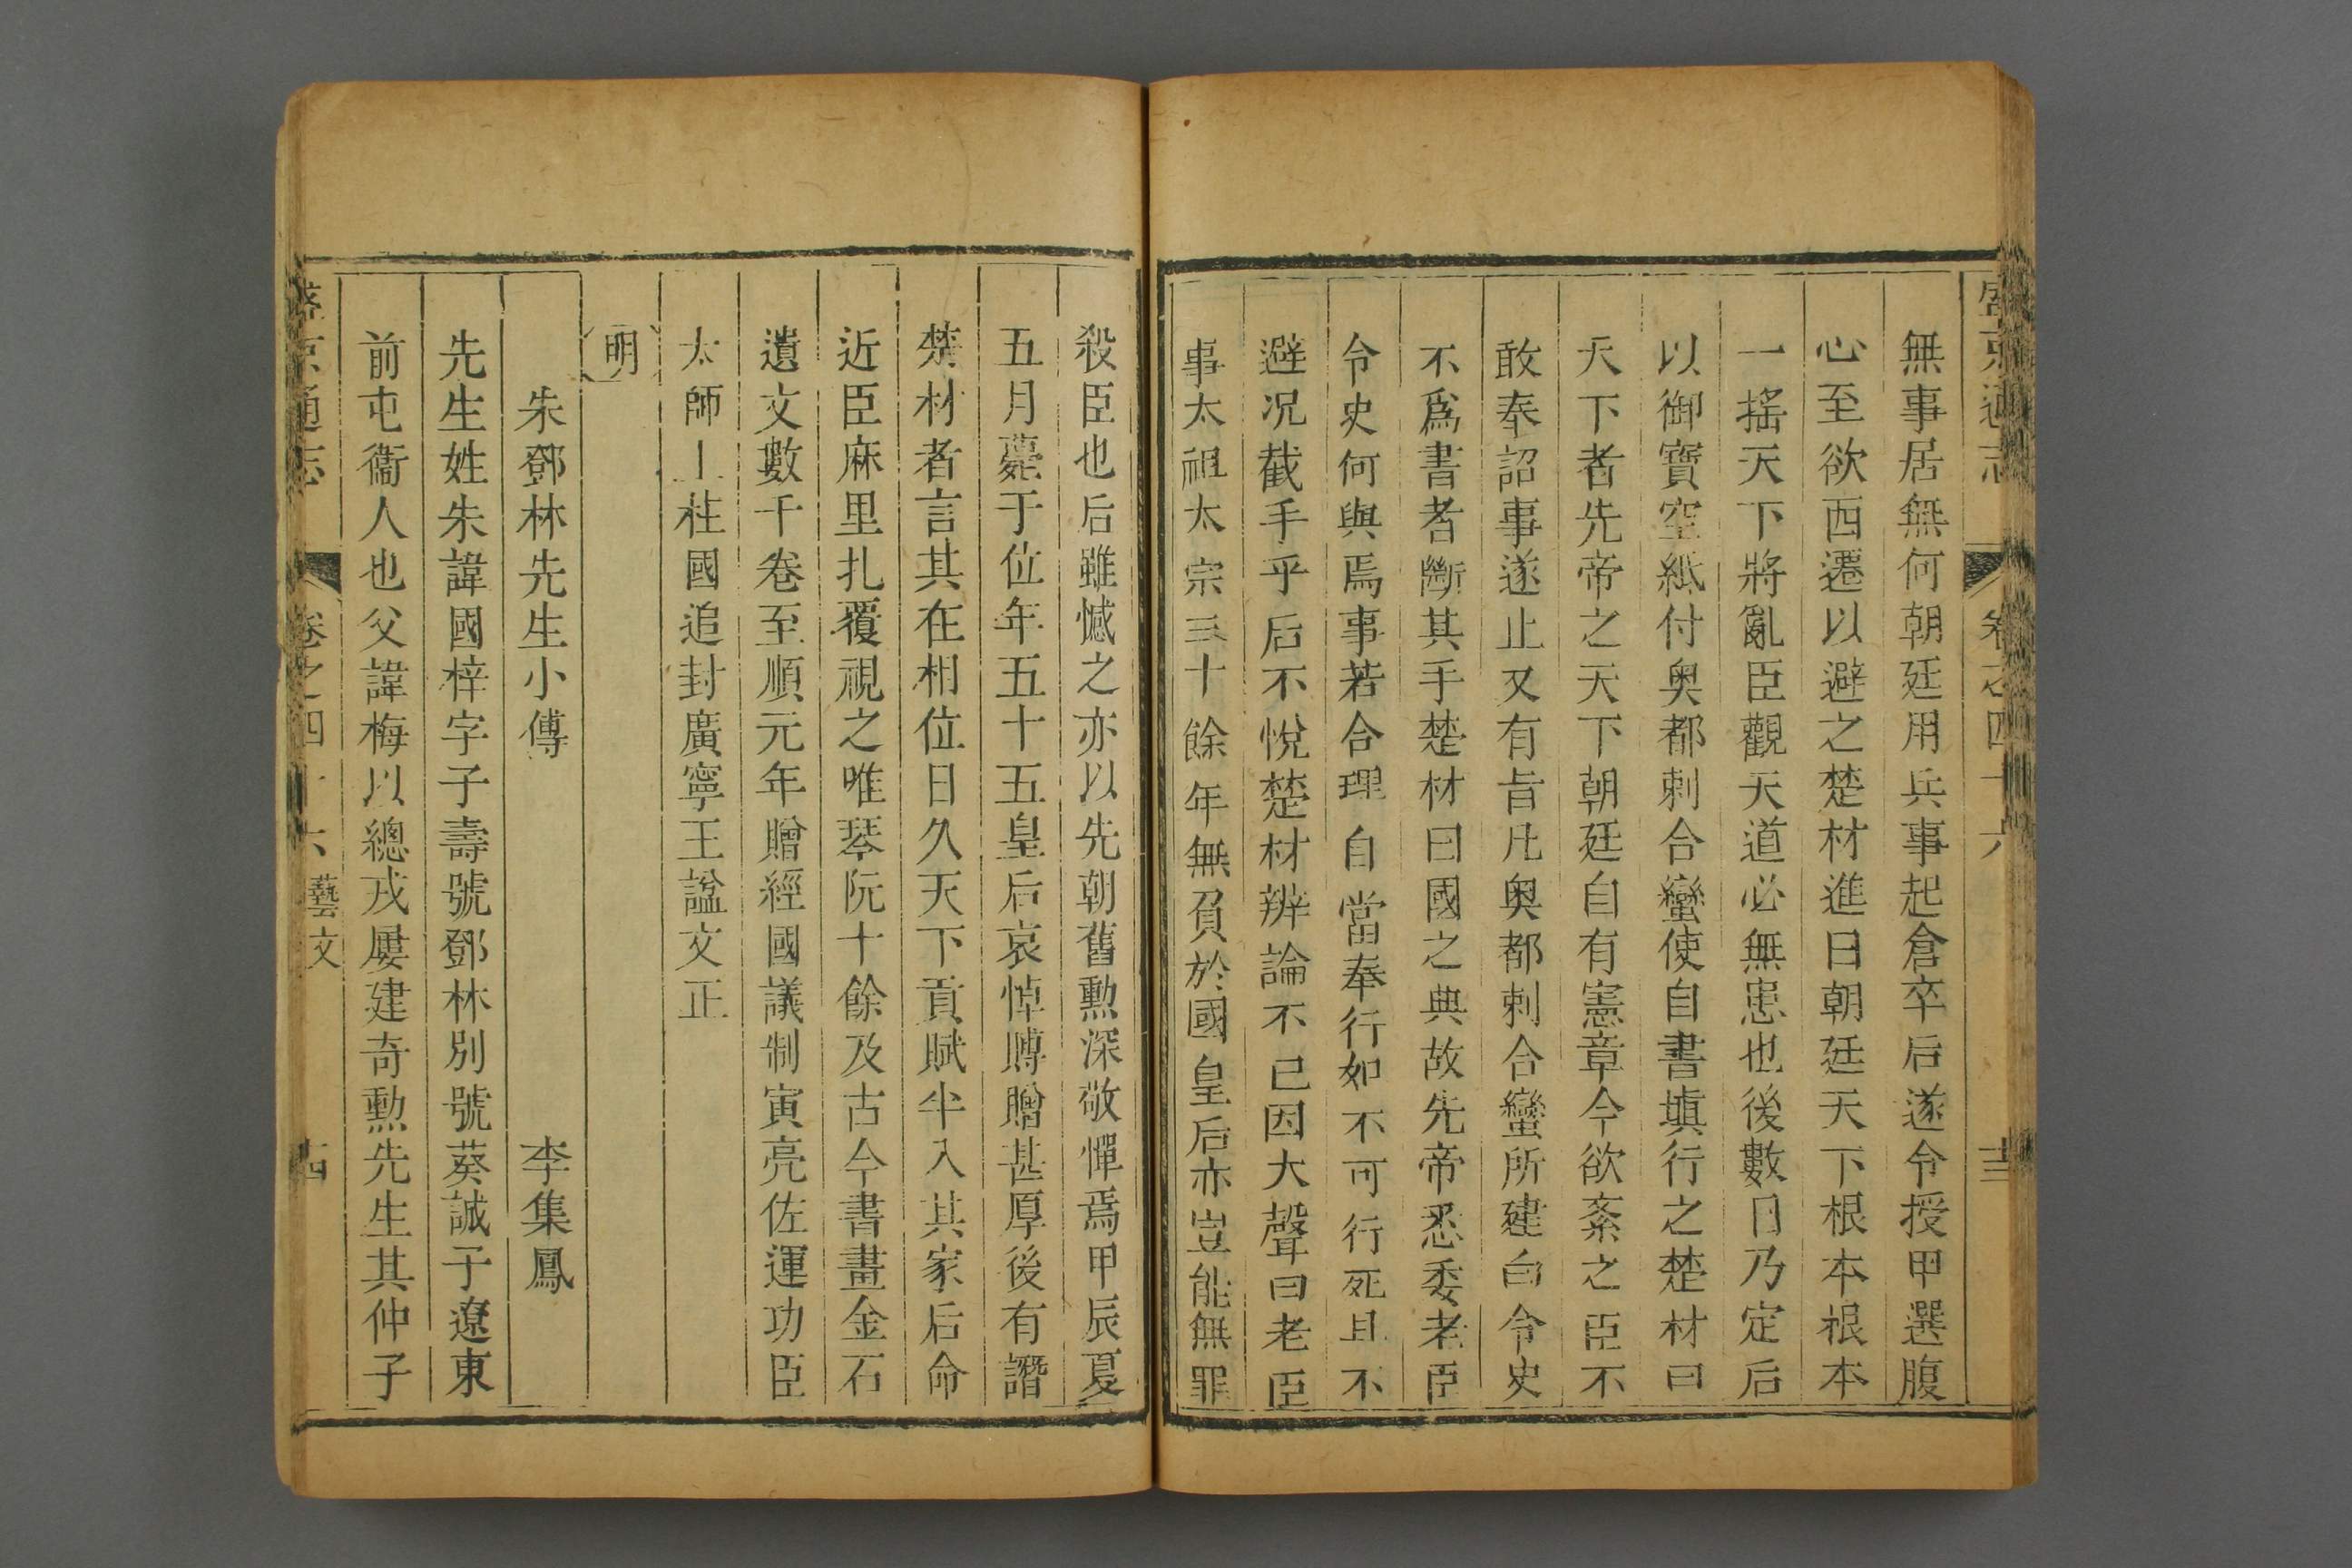 盛京通志 卷之四十六 十三
無事居無何朝廷用兵事起倉卒后遂令授甲選腹
心至欲西遷以避之楚材進曰朝廷天下根本根本
一搖天下將亂臣觀天道必無患也後數日乃定后
以御寶空紙付奥都剌合蠻使自書塡行之楚材曰
天下者先帝之天下朝廷自有憲章今欲紊之臣不
敢奉詔事遂止又有旨凡奥都剌合蠻所建白令史
不爲書者斷其手楚材曰國之典故先帝悉委老臣
令史何與焉事若合理自當奉行如不可行死且不
避况截手乎后不悅楚材辨論不已因大聲曰老臣
事太祖太宗三十餘年無負於國皇后亦豈能無罪
殺臣也后雖憾之亦以先朝舊勲深敬憚焉甲辰夏
五月薨于位年五十五皇后哀悼賻贈甚厚後有譖
楚材者言其在相位日久天下貢賦半入其家后命
近臣麻里扎覆視之唯琴阮十餘及古今書畫金石
遺文數千卷至順元年贈經國議制寅亮佐運功臣
太師上柱國追封廣寧王諡文正
明
朱鄧林先生小傳 李集鳳
先生姓朱諱國梓字子壽號鄧林別號葵誠子遼東
前屯衞人也父諱梅以總戎屢建奇勲先生其仲子
盛京通志 卷之四十六 藝文 十四